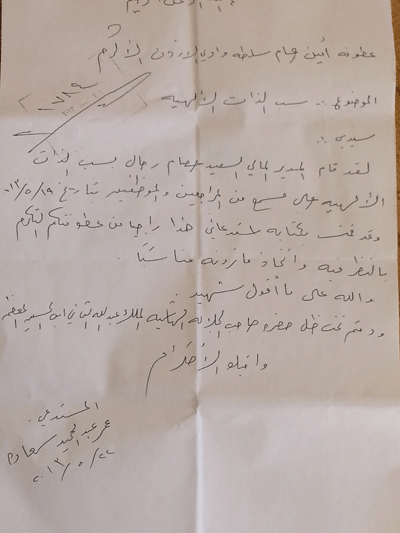 بسم الله الرحمن الرحيم
عطوفة أمين عام سلطة وادي الأردن الأكرم
الموضوع :. سب الذات الإلهية
سيدي :.
لقد قام المدير المالي السيد عصام رحال بسب الذات
الإلهية على مسمع من المراجعين والموظفين بتاريخ ٢٠١٣/٥/١٩
وقد قمت بكتابة استدعائي هذا راجيا من عطوفتكم التكرم
بالنظر فيه واتخاذ ما ترونه مناسبًا .
والله على ما أقول شهيد .
ودمتم تحت ظل حضرة صاحب الجلالة الهاشمية الملك عبدالله الثاني ابن الحسين المعظم
واقبلو الأحترام
المستدعي .
عمر عبدالحميد
٢٠١٣/٥/٢٢